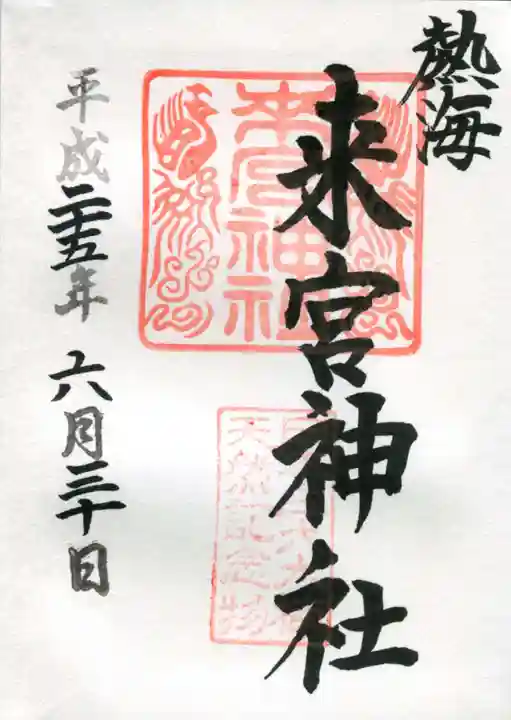 熱海
来宮神社
来宮神社
天然記念物
平成二十五年
六月三十日